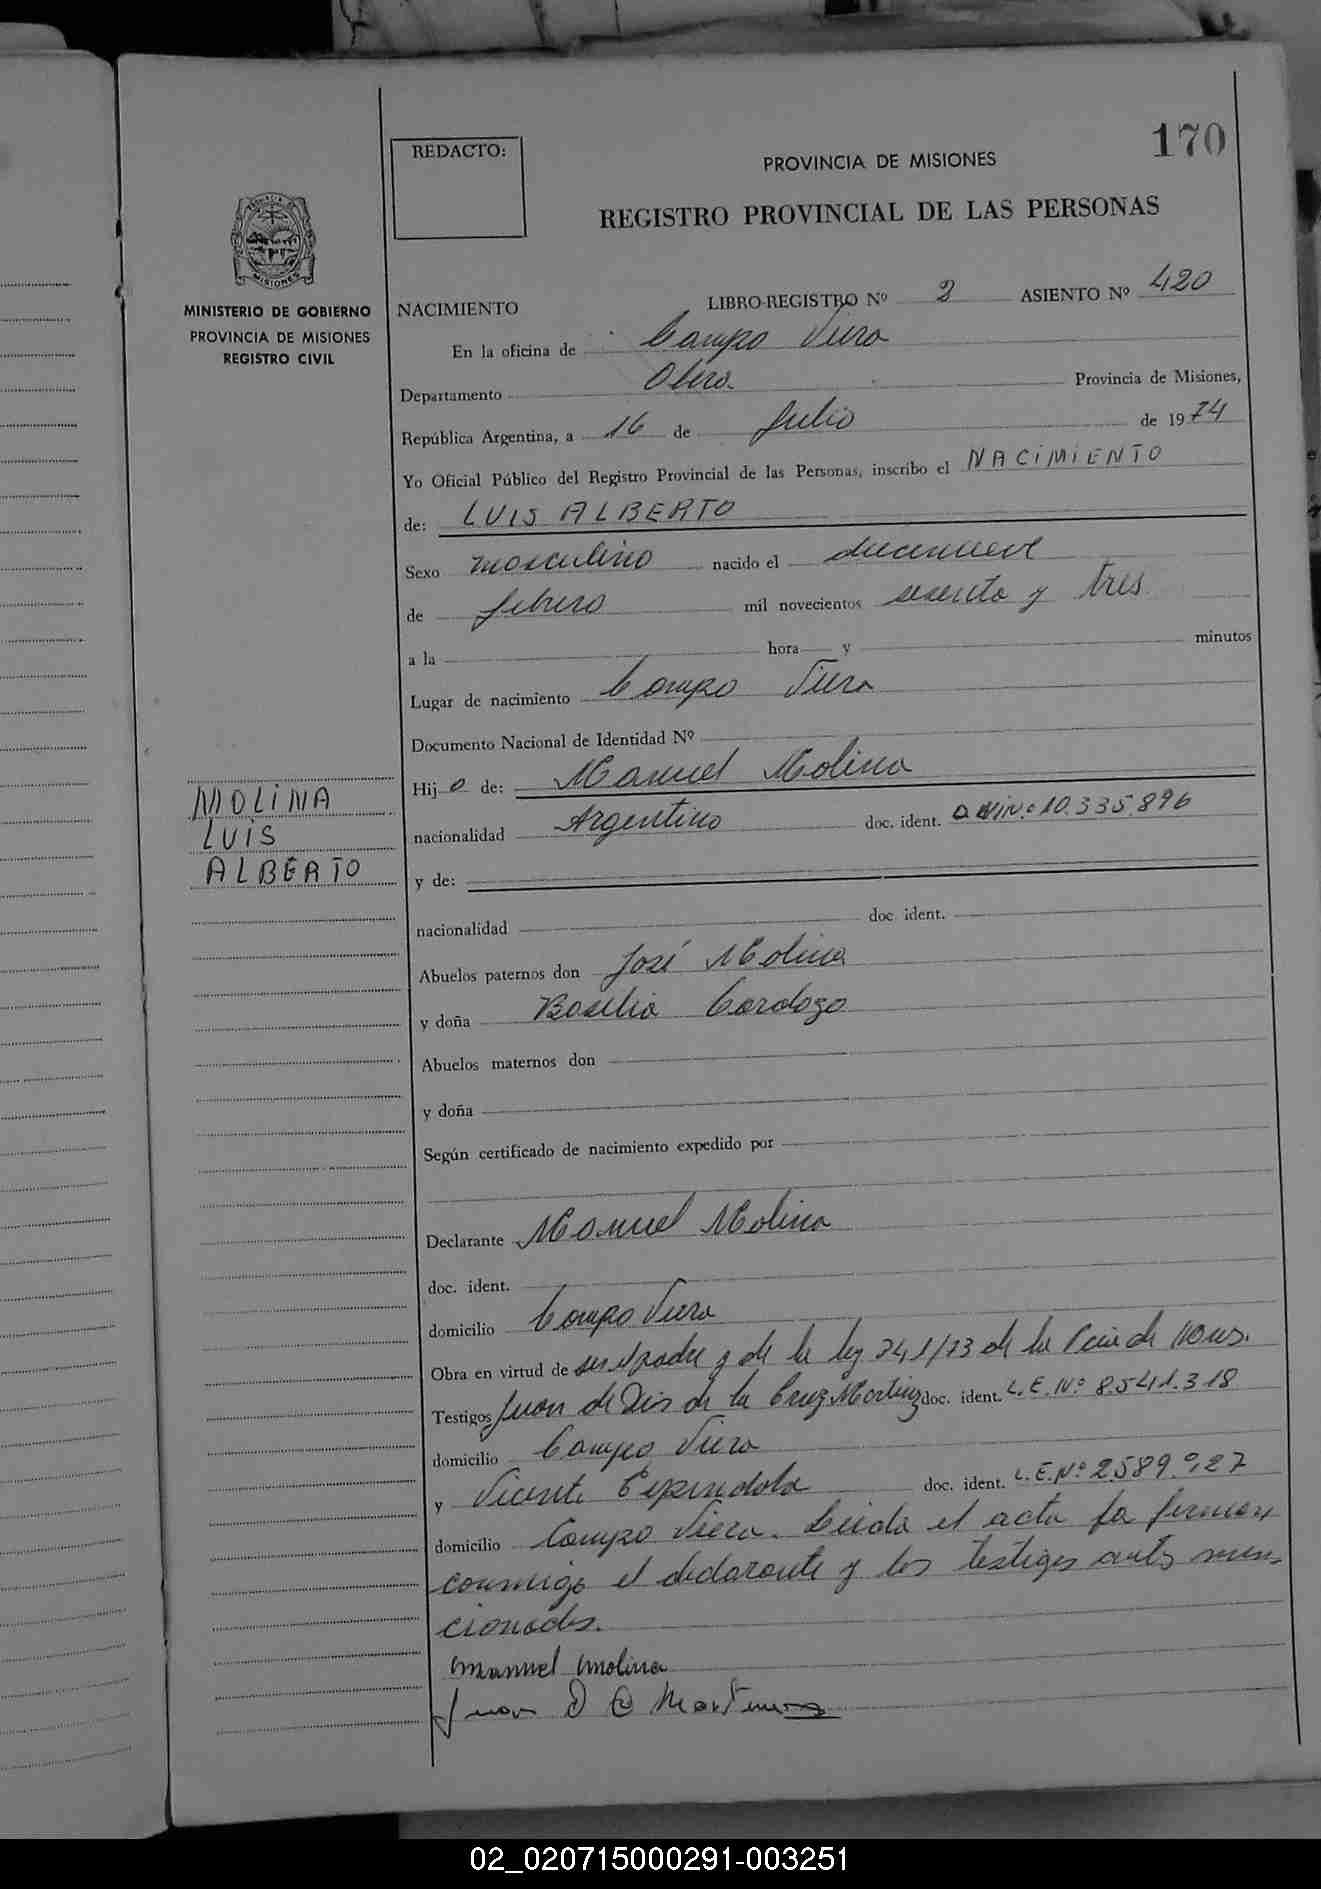 170
REDACTO:
PROVINCIA DE MISIONES
REGISTRO PROVINCIAL DE LAS PERSONAS
MISIONES
MINISTERIO DE GOBIERNO
PROVINCIA DE MISIONES
REGISTRO CIVIL
NACIMIENTO LIBRO-REGISTRO Nº 2 ASIENTO Nº 420
En la oficina de Campo Viera
Departamento Obera Provincia de Misiones,
República Argentina, a 16 de Julio de 1974
Yo Oficial Público del Registro Provincial de las Personas, inscribo el NACIMIENTO
de: LUIS ALBERTO
Sexo masculino nacido el diecinueve
de febrero mil novecientos sesenta y tres
a la hora y minutos
Lugar de nacimiento Campo Viera
Documento Nacional de Identidad Nº
Hijo de: Manuel Molina
nacionalidad Argentino doc. ident. 10.335.896
MOLINA
LUIS
ALBERTO
y de:
nacionalidad doc. ident.
Abuelos paternos don José Molina
y doña Basilia Cardozo
Abuelos maternos don
y doña
Según certificado de nacimiento expedido por
Declarante Manuel Molina
doc. ident.
domicilio Campo Viera
Obra en virtud de ser el padre y de la ley 241/73 de la Pcia de
Testigos Juan de Dios de la Cruz Martinez doc. ident. L.E. Nº 8.541.318
domicilio Campo Viera
y Vicente Espindola doc. ident. L.E. Nº 2.589.927
domicilio Campo Viera. Leida el acta la firman
conmigo el declarante y los testigos antes men-
cionados.
Manuel Molina
Juan D C Martinez
02_020715000291-003251